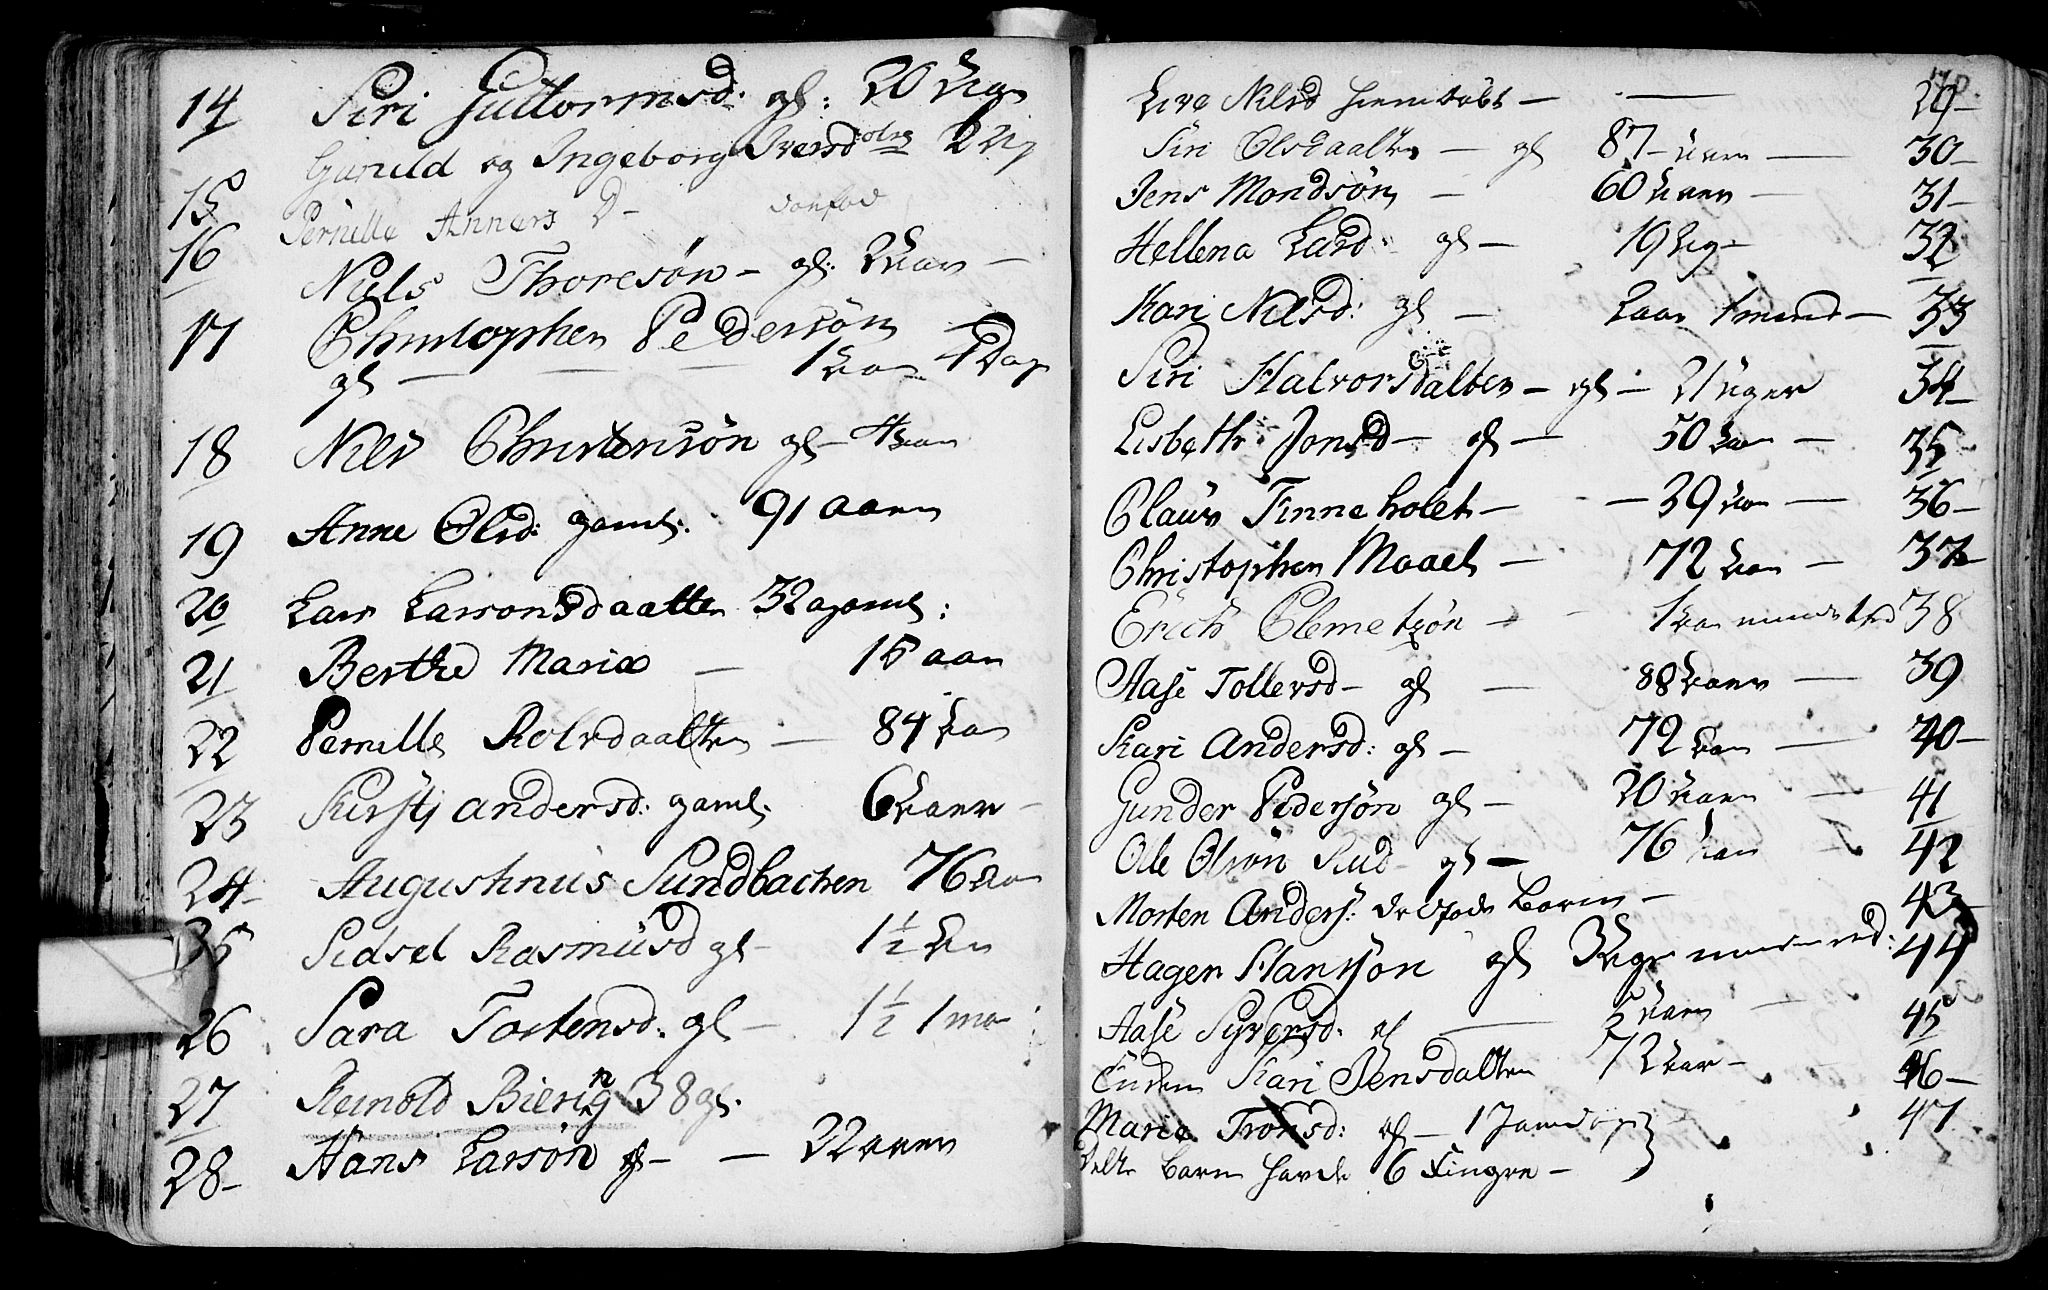 14 Siri Guttormsd: gl: 20 Uger
15 Gunild og Ingeborg Iversd
Pernille Anners D-
16 Niels Thoresøn - gl: 2 Aar -
17 Christopher Pedersøn
gl - 1 Aar 4 Dag
18 Nils Christensøn gl - 4 Aar
19 Anne Olsd: gaml: 91 aaer
20 Lars Larsonsdaatter 32 a gaml:
21 Berthe Maria - 15 aar
22 Pernille Rolvdaatter - 84 Aar
23 Kirstj Andersd: gaml: 6 Aaer -
24 Augustinus Sundbachen 76 Aar
25 Sidsel Rasmusd gl - 1½ Aar
26 Sara Tostensd: gl - 1½ 1 mo
27 Reinold Biering 38 gl:
28 - Hans Larsøn gl - - 22 aaer
Live Nilsd hiemdøbt - - 29 -
Siri Olsdaatter - gl 87 - Aar - 30 -
Jens Mondsøn - 60 Aaer - 31 -
Hellena Larsd: gl - 19 Ug - 32
Kari Nilsd: gl - 2 Aar 1 Maaned - 33
Siri Halvorsdatter - gl - 21 Uger 34
Lisbeth Jonsd - gl - 50 Aar - 35
Claus Finneholet - - 39 Aar - 36 -
Christopher Moael - 72 Aar - 37
Erich Clemetsøn - 1 Aar 38
Aase Tollersd - gl - 88 Aaer - 39
Kari Andersd: gl - 72 Aar - 40 -
Gunder Pedersøn gl - 20 Aaer - 41
Ole Olsøn Rud - gl - 76 Aar 42
Morten Anders: Barn - 43
Hagen Hansøn gl 3 Uger 44
Aase Syversd: gl - 5 Aar - 45
Enken Kari Jensdatter 72 Aar - 46 -
Marie Tronsd: gl - 17 47
Dette Barn havde 6 Fingre -